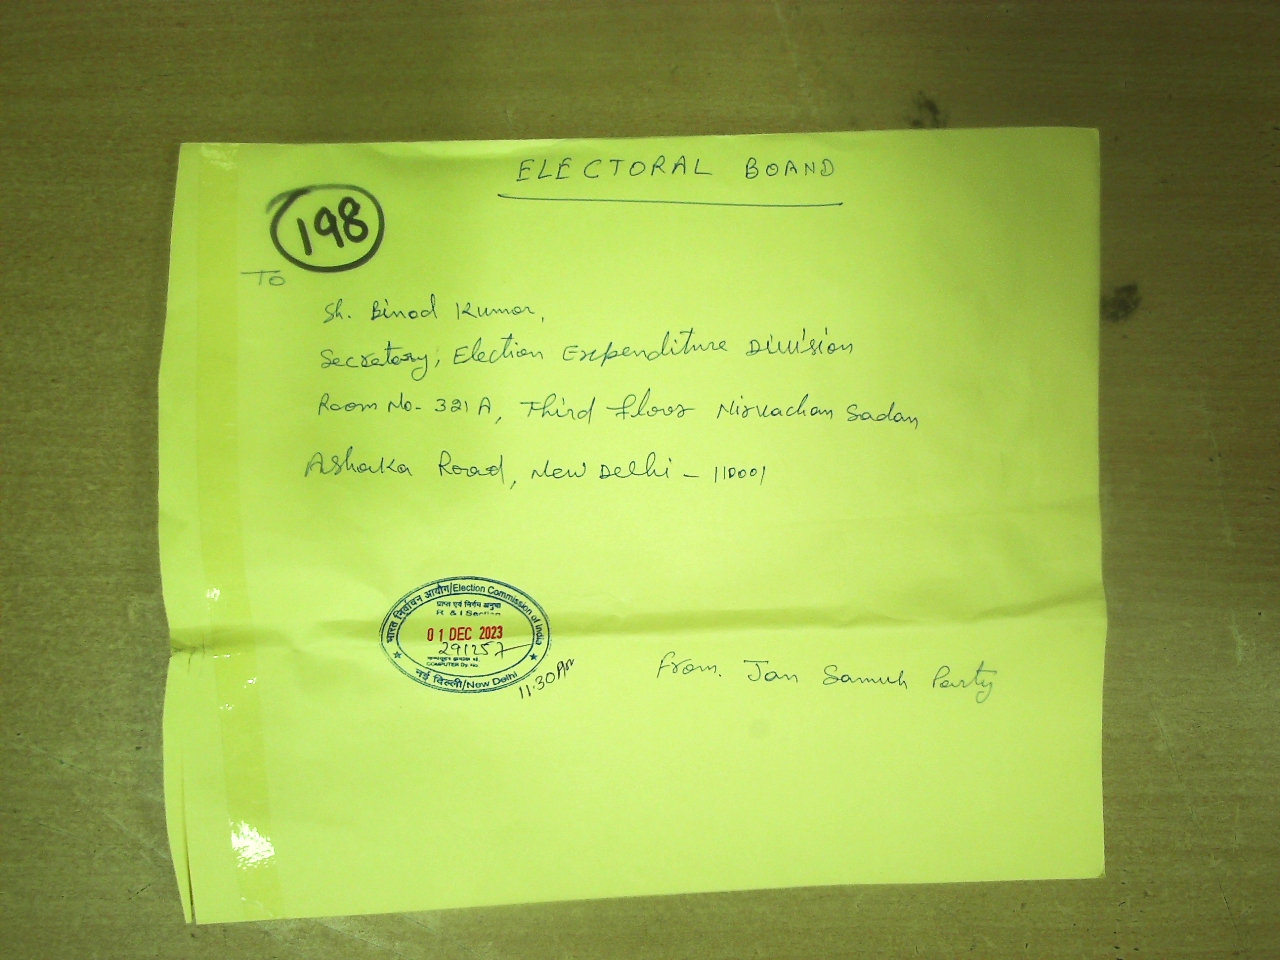 ELECTORAL BOAND
198
To
Sh. Binod Kumar,
Secretary, Election Expenditure Division
Room No- 321 A, Third floor Nirvachan Sadan
Ashoka Road, New Delhi - 110001
भारत निर्वाचन आयोग/Election Commission of India
R & I Section
01 DEC 2023
291257
COMPUTER Dy. No.
नई दिल्ली/New Delhi
11.30 AM
From. Jan Samuh Party